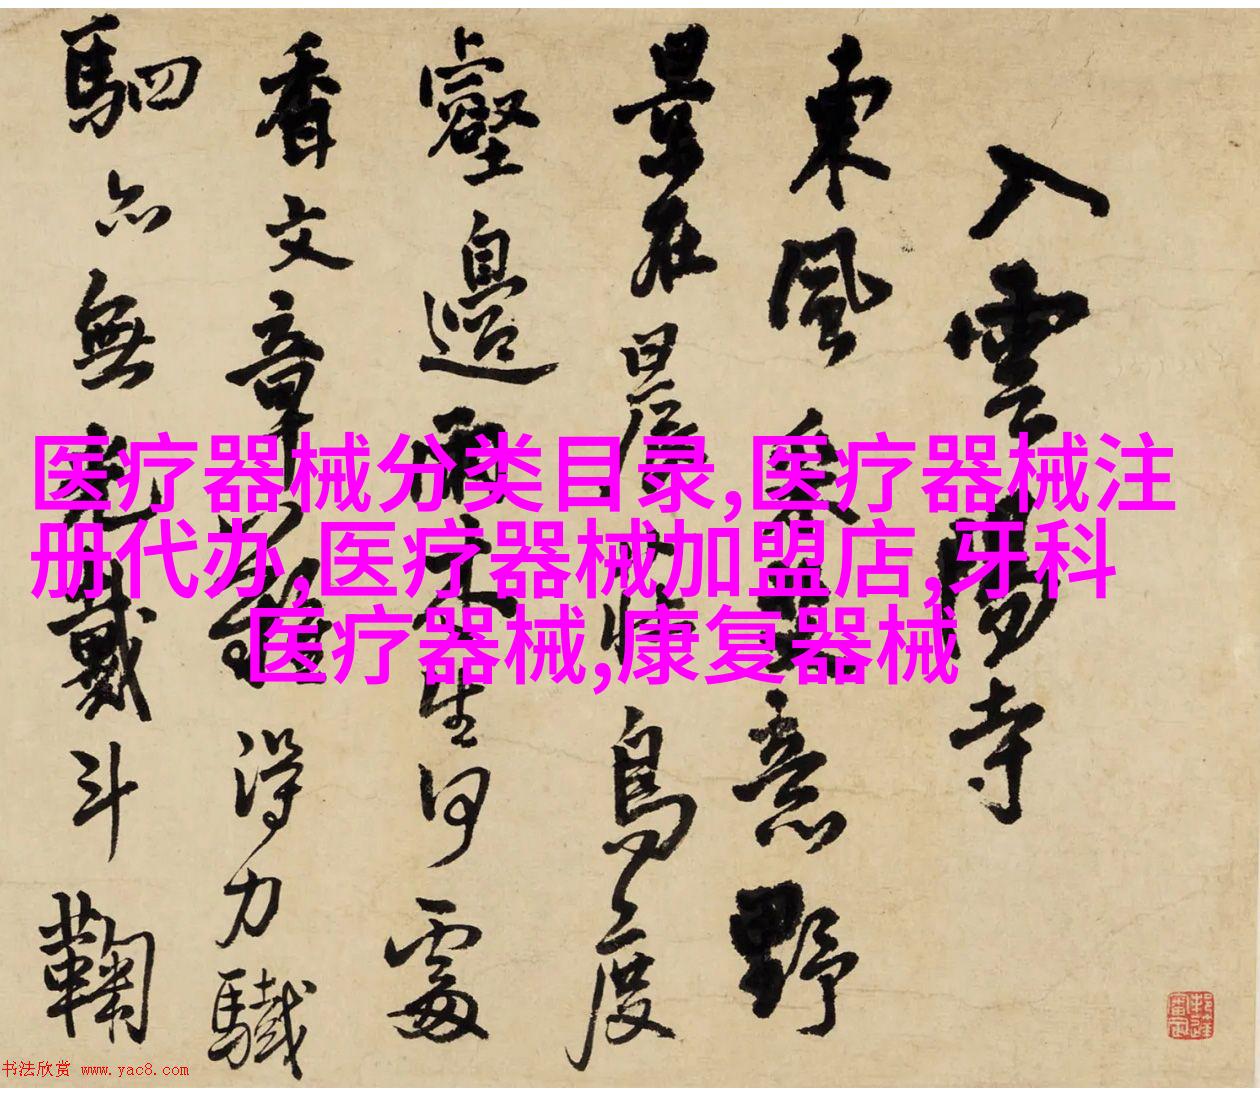 医疗器械分类目录,医疗器械注
册代办,医疗器械加盟店,牙科
医疗器械,康复器械
入雲寺
東風意野
景在晨鳥度
壑邊雨生何處
香文章難得力驖
駟亦無戴斗鞠
书法欣赏 www.yac8.com